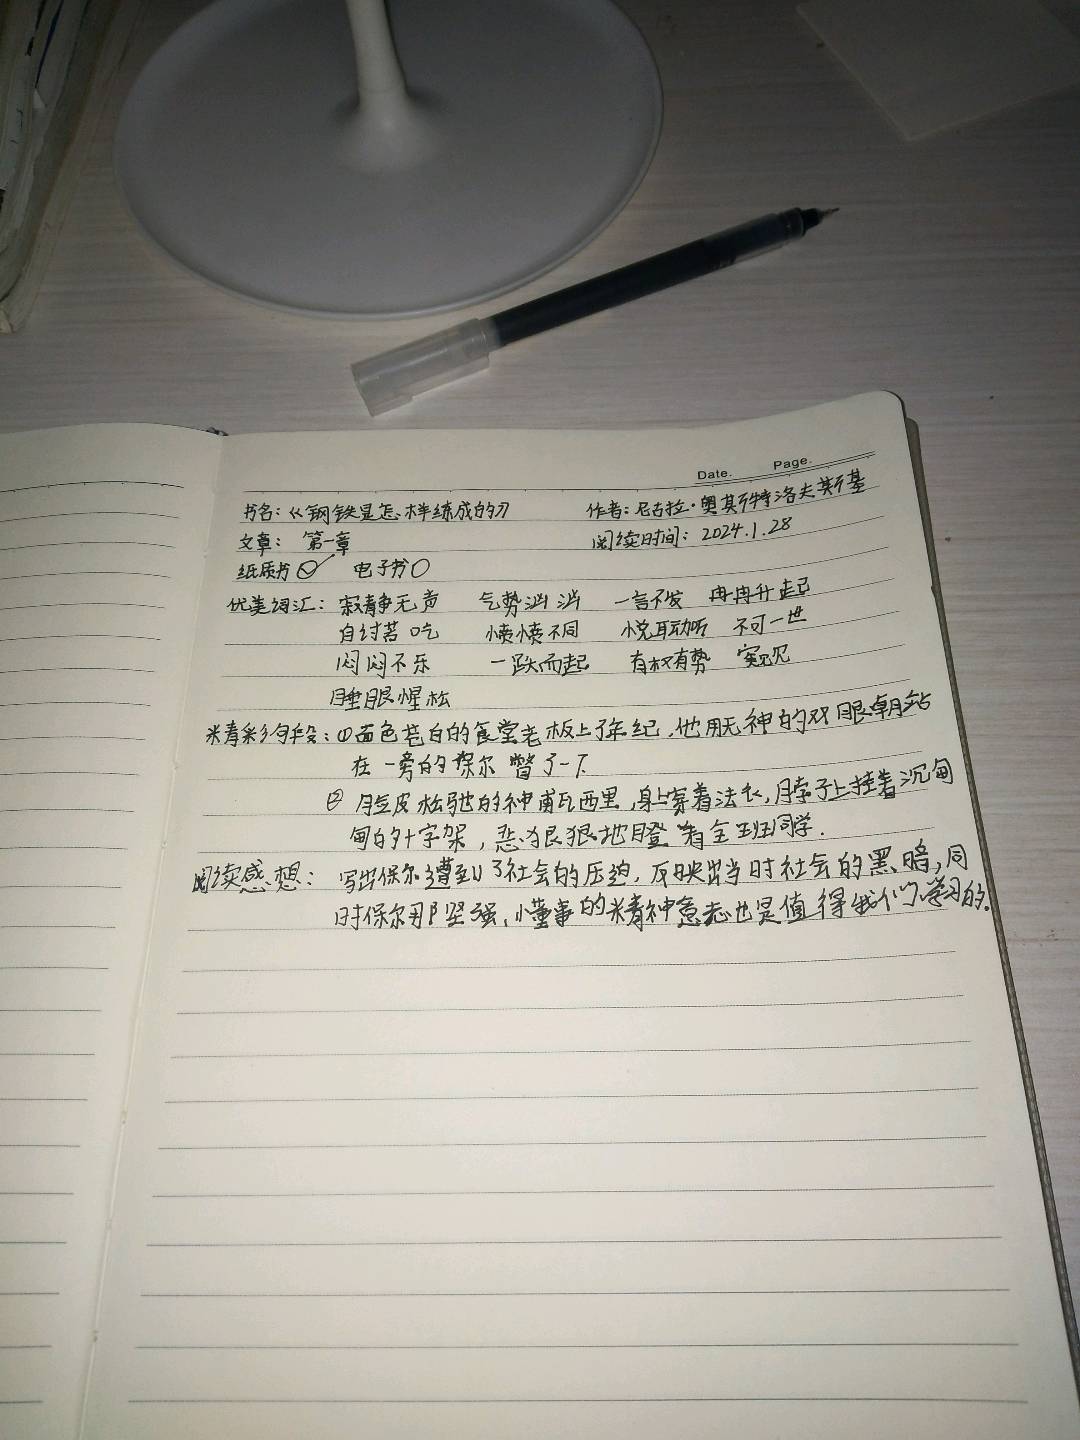 Date.    Page.
书名:《钢铁是怎样练成的》    作者:尼古拉·奥斯特洛夫斯基
文章: 第一章    阅读时间: 2024.1.28
纸质书    电子书
优美词汇: 寂静无声  气势汹汹  一言不发  冉冉升起
自讨苦吃  愤愤不同  悦耳动听  不可一世
闷闷不乐  一跃而起  有权有势
睡眼惺松
精彩句段:①面色苍白的食堂老板上了年纪,他用无神的双眼朝站
在一旁的保尔瞥了一下
② 皮松弛的神甫瓦西里,身上穿着法衣,脖子上挂着沉甸
甸的十字架,恶狠狠地瞪着全班同学.
阅读感想: 写出保尔遭到了社会的压迫,反映出当时社会的黑暗,同
时保尔那坚强、懂事的精神意志也是值得我们学习的.